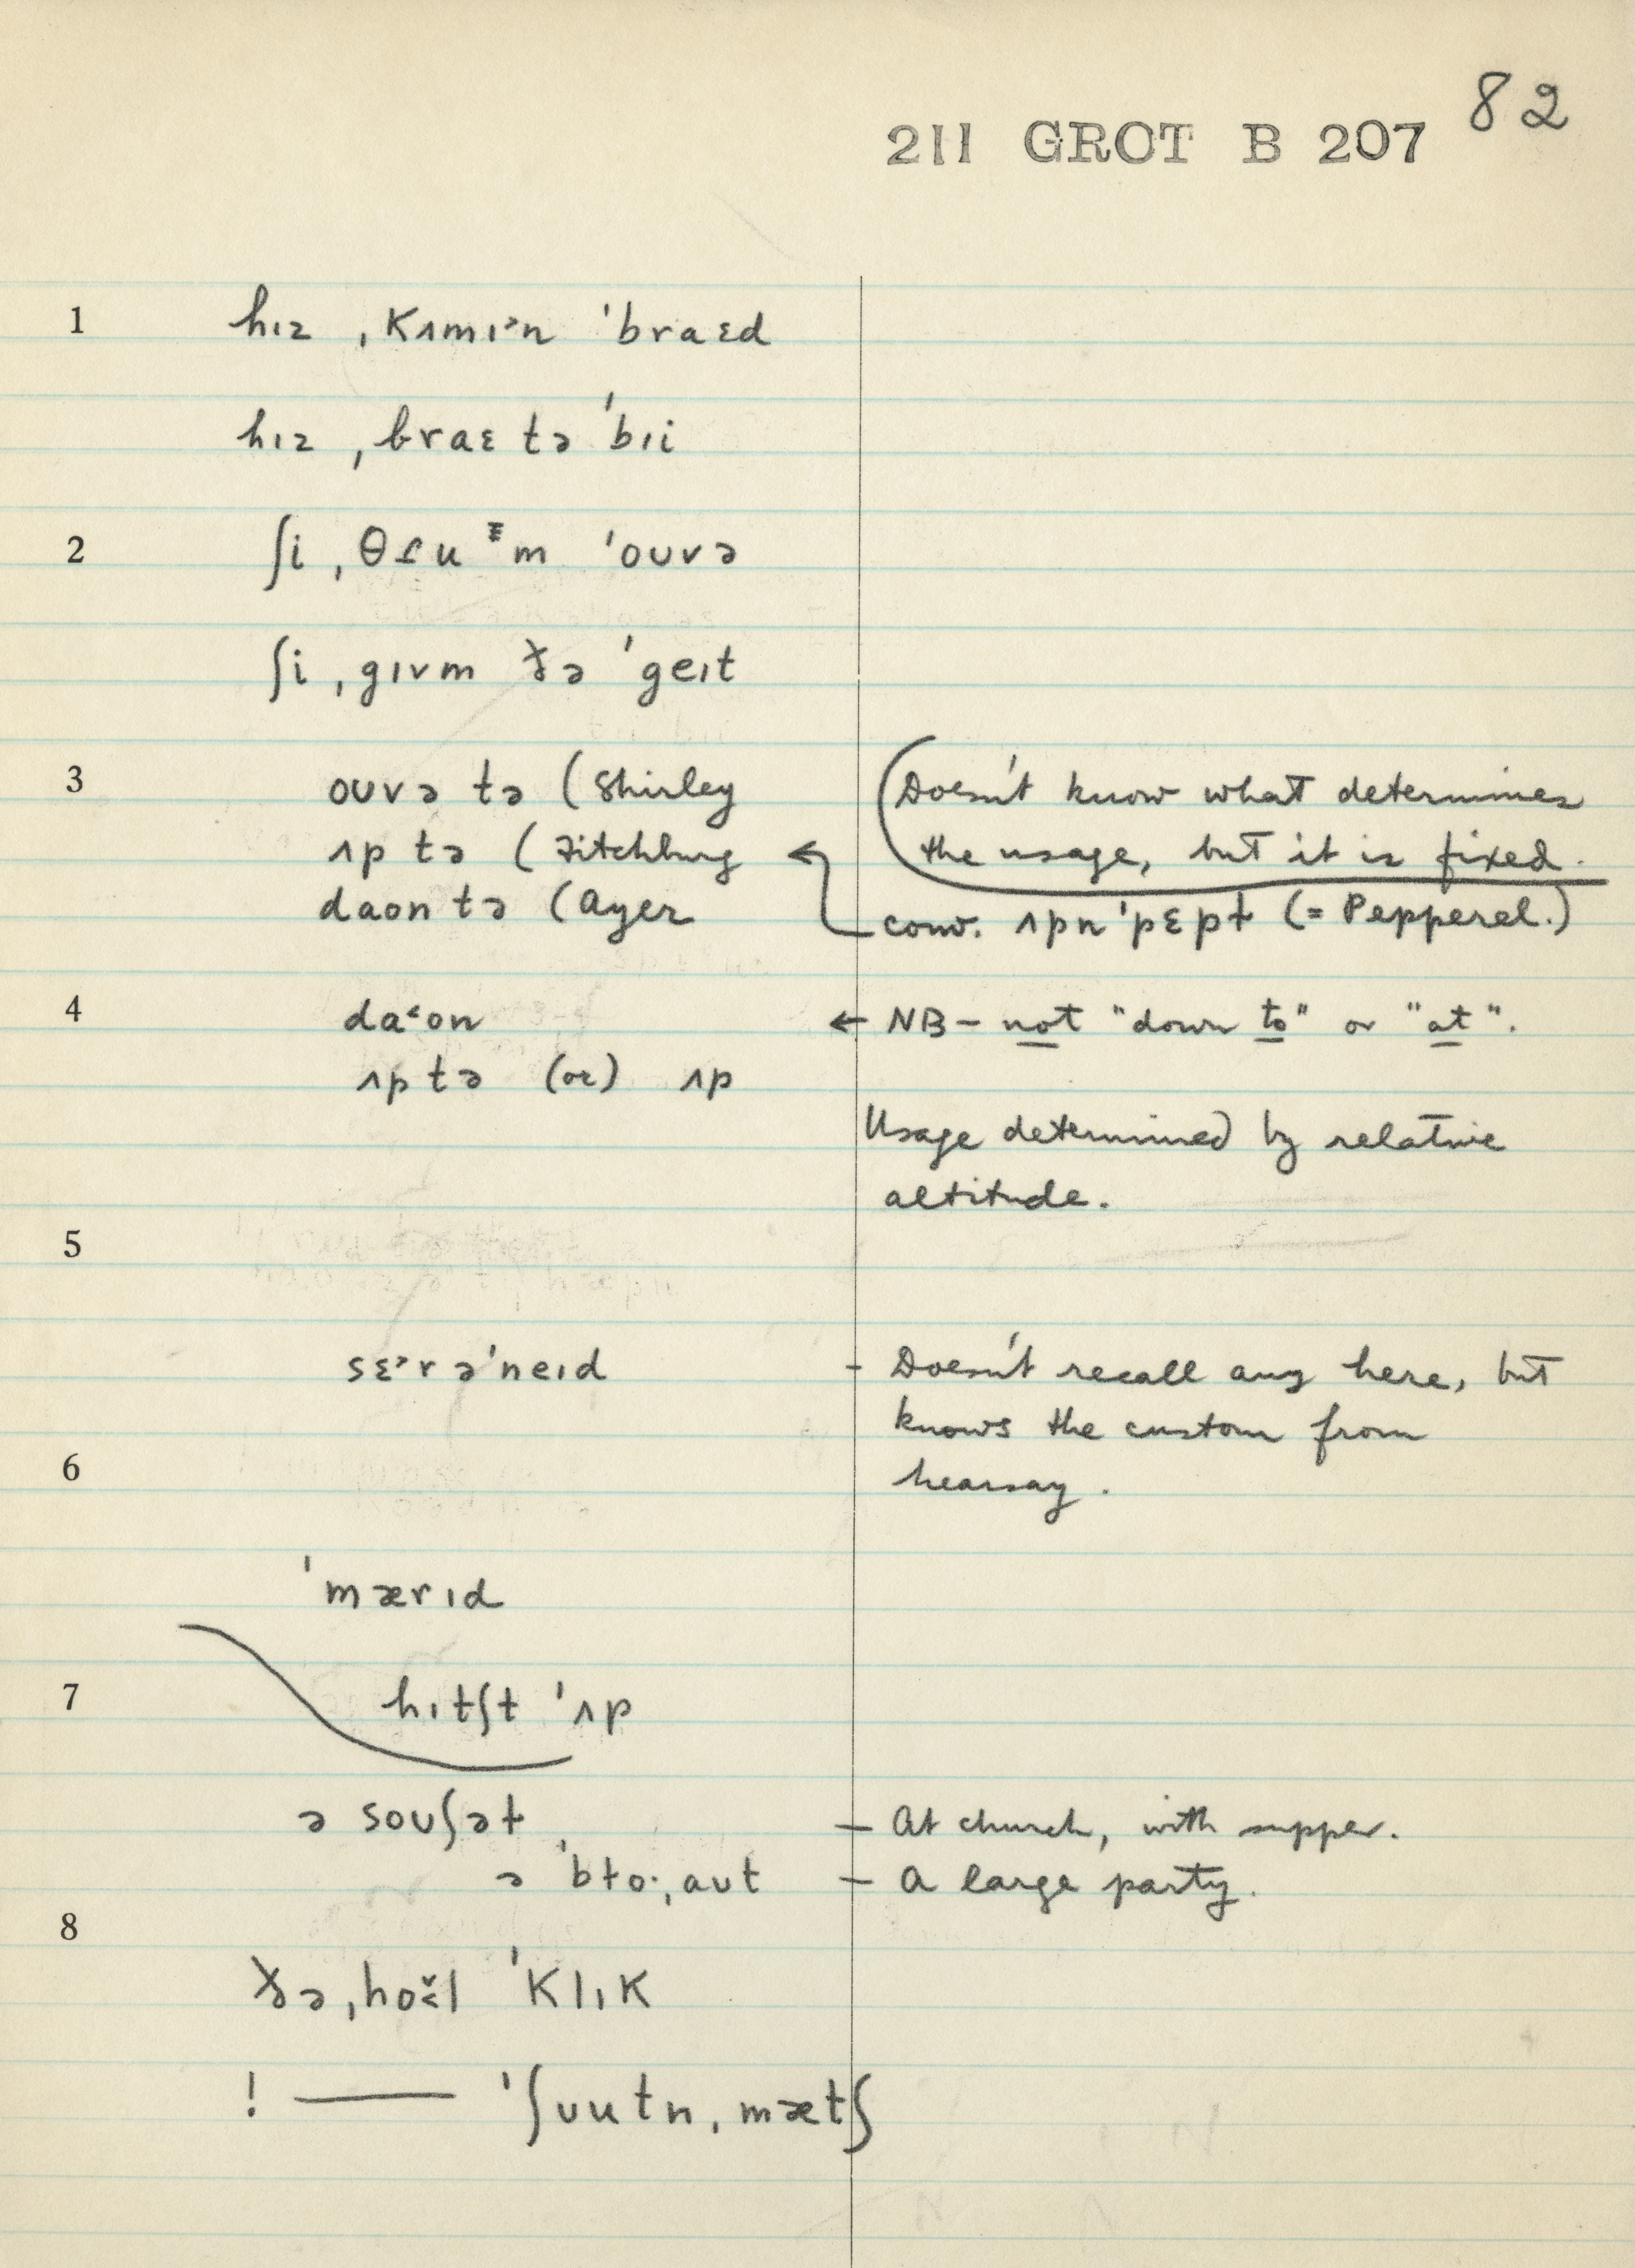 82
211 GROT B 207
1 hɪz ˌkʌmɪ˃n ˈbraɛd
hɪz ˌbraɛ tə ˈbɪi
2 ʃi ˌθɾu m ˈoʊvə
ʃi ˌgɪvm ðə ˈgeɪt
3 oʊvə tə (Shirley (Doesn't know what determines
ʌp tə (Fitchburg ← the usage, but it is fixed.
daon tə (Ayer conv. ʌpn ˈpɛpɫ (= Pepperel.)
4 da˂on ← NB – not "down to" or "at".
ʌp tə (or) ʌp
Usage determined by relative
altitude.
5
sɛ˃rəˈneɪd - Doesn't recall any here, but
knows the custom from
6 hearsay.
ˈmærɪd
7 hɪtʃt ˈʌp
ə soʊʃəɫ — At church, with supper.
ə ˈbɫo·ˌaʊt — A large party.
8
ðə ˌhol ˈklɪk
! —— ˈʃʊutn ˌmætʃ